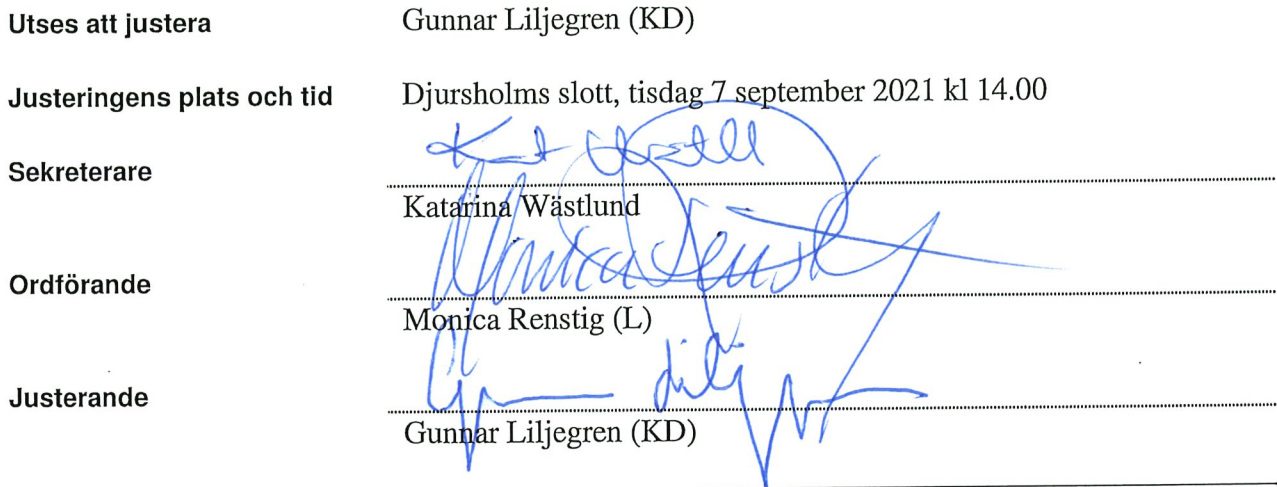 Utses att justera Gunnar Liljegren (KD)
Justeringens plats och tid Djursholms slott, tisdag 7 september 2021 kl 14.00
Sekreterare
Katarina Wästlund
Ordförande Monica Renst
Monica Renstig (L)
Justerande
Gunnar Liljegren (KD)